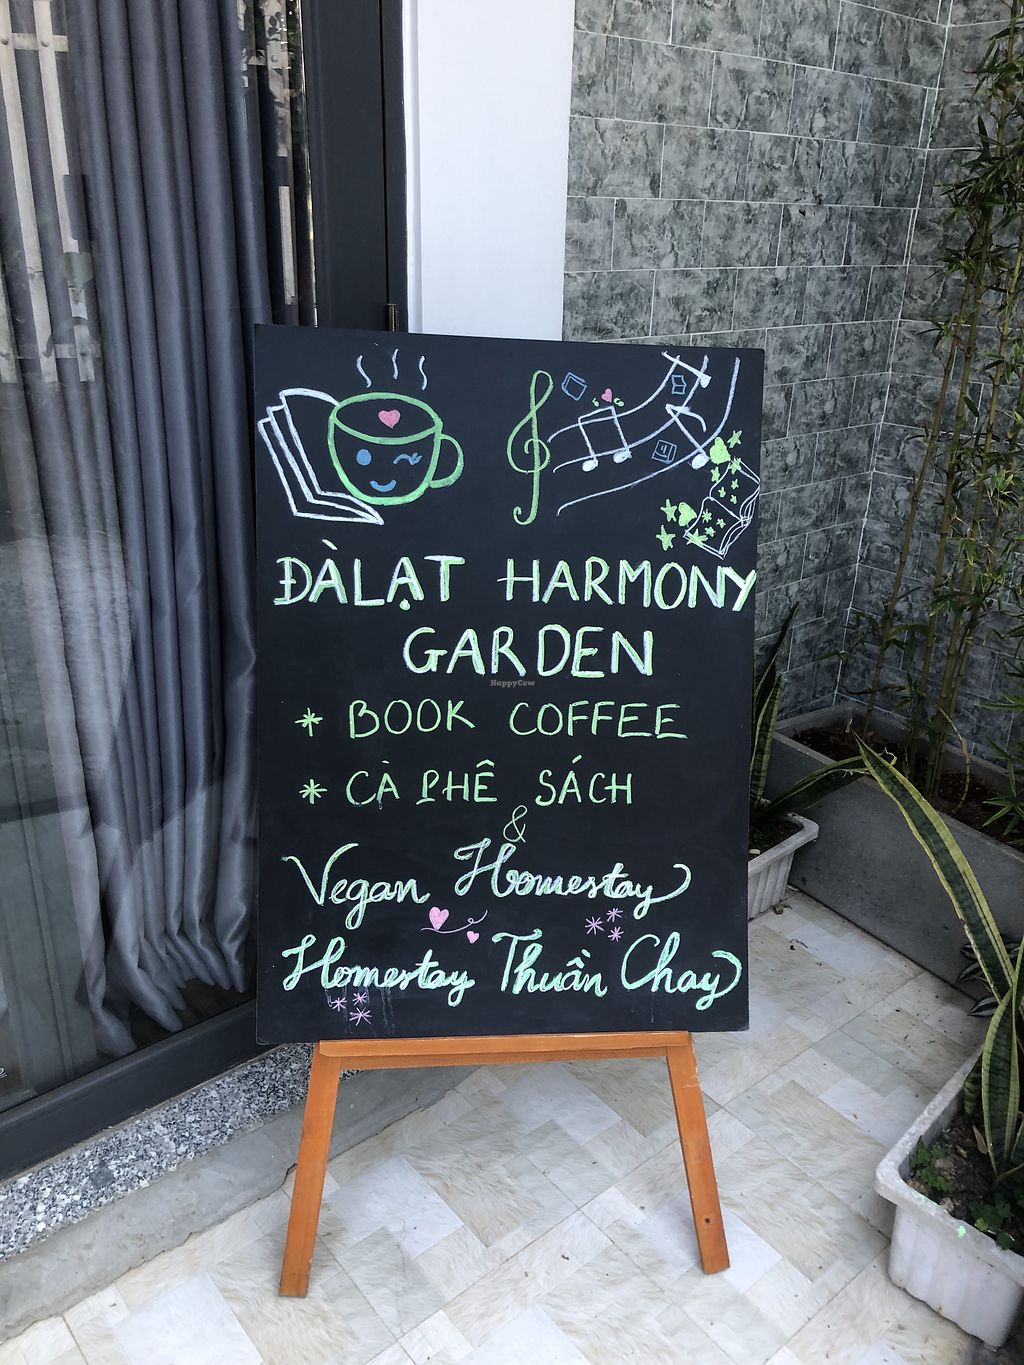 ĐÀLẠT HARMONY
GARDEN
HappyCow
* BOOK COFFEE
* CÀ PHÊ SÁCH
&
Vegan Homestay
Homestay Thuần Chay